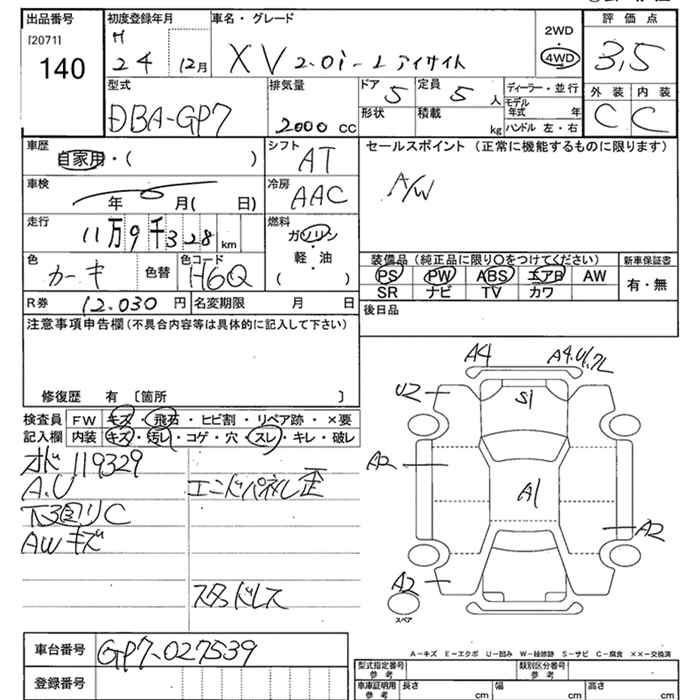 出品番号 初度登録年月 車名・グレード 2WD 評価点
[2071] H
140 24 12月 XV 2.0i-L アイサイト 4WD 3,5
型式 排気量 ドア 5 定員 5 人 ディーラー・並行 外装 内装
DBA-GP7 2000 cc 形状 積載 kg モデル年式 年 C C
ハンドル 左・右
車歴 自家用・( ) シフト AT セールスポイント (正常に機能するものに限ります)
車検 年 月( 日) 冷房 AAC A/W
走行 11万9千328 km 燃料 ガソリン・軽油
色 カーキ 色替 色コード H6Q ( ) 装備品(純正品に限り○をつけてください) 新車保証書
PS PW ABS エアB AW 有・無
R券 12,030 円 名変期限 月 日 SR ナビ TV カワ
注意事項申告欄(不具合内容等は具体的に記入して下さい) 後日品
修復歴 有 〔箇所 〕
検査員 FW キズ・飛石・ヒビ割・リペア跡・×要
記入欄 内装 キズ・汚レ・コゲ・穴・スレ・キレ・破レ
オド 119329
A.U エンドパネル歪
下回りC
AWキズ
スタッドレス
A4 A4.U1.
U2 S1
A2 A1
A2
A2
スペア
A-キズ E-エクボ U-凹み W-補修跡 S-サビ C-腐食 ××-交換済
車台番号 GP7-027539
登録番号
型式指定番号 参考 類別区分番号 参考
車庫証明用 参考 長さ cm 幅 cm 高さ cm